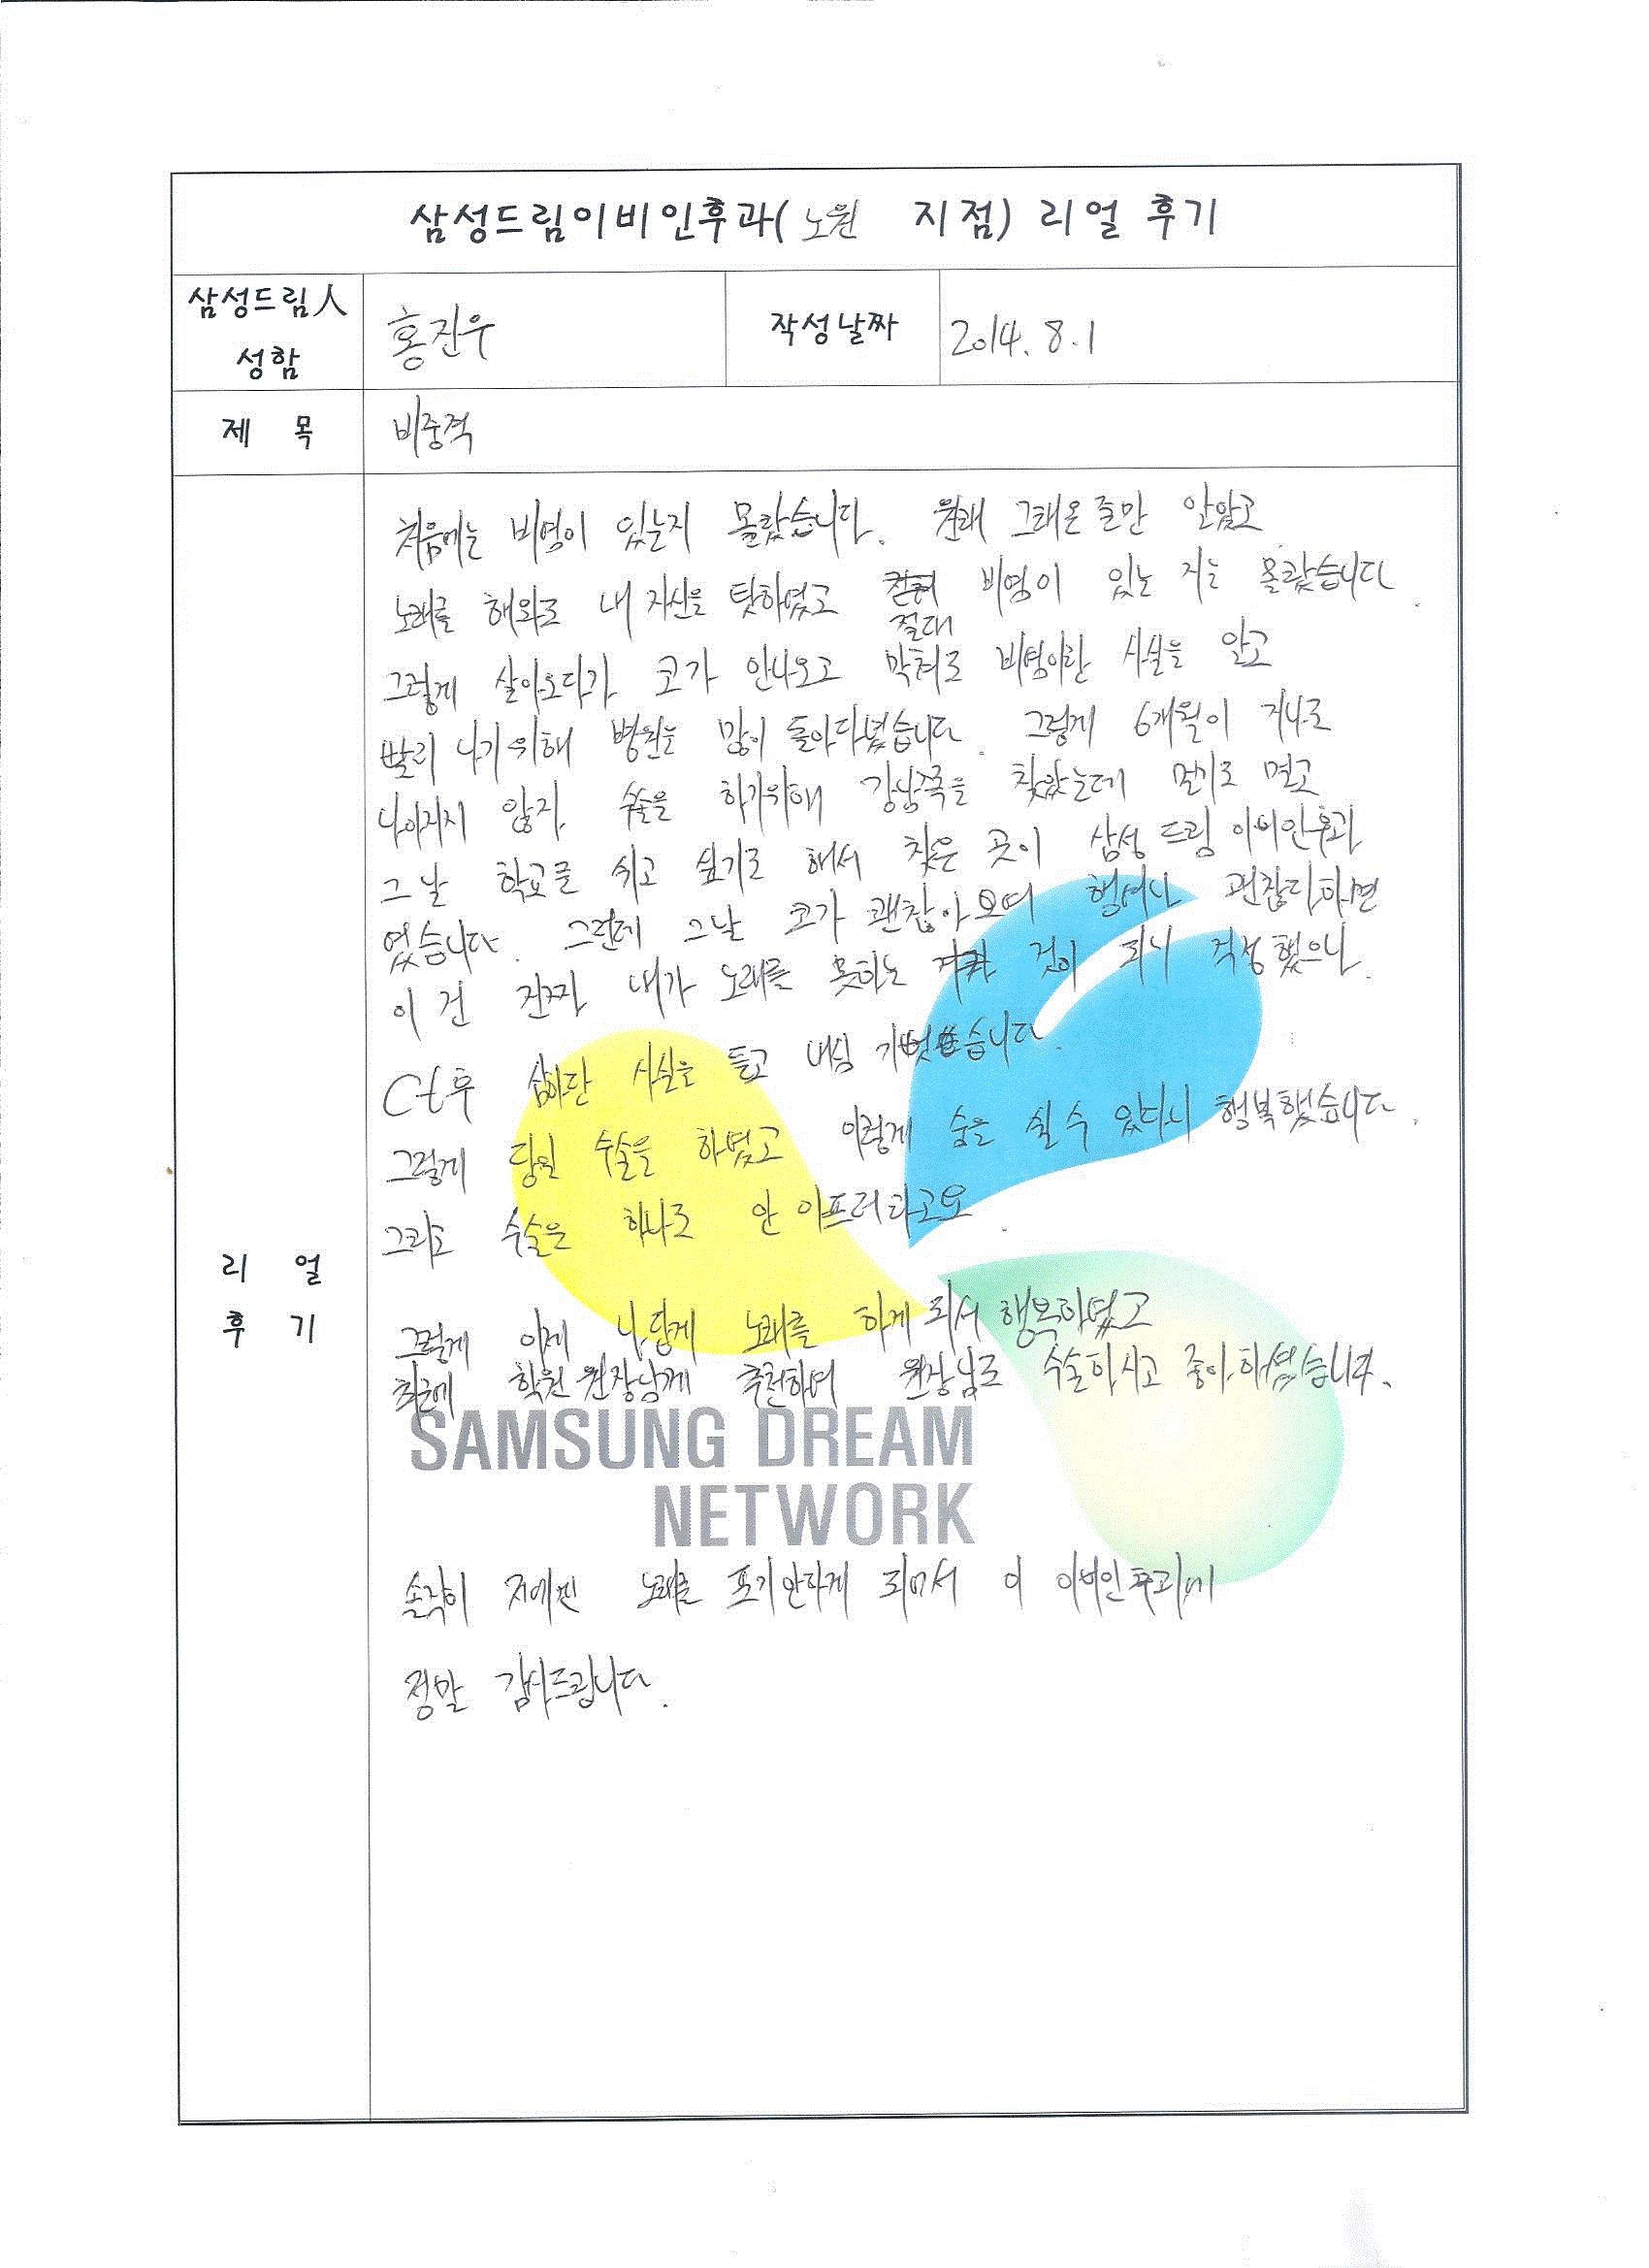 삼성드림이비인후과( 노원 지점) 리얼 후기
삼성드림人 성함
홍진우
작성날짜
2014. 8. 1
제 목
비중격
리 얼 후 기
처음에는 비염이 있는지 몰랐습니다. 원래 그래온 줄만 알았고
노래를 해와도 내 자신을 탓하였고 절대 비염이 있는 지는 몰랐습니다.
그렇게 살아오다가 코가 안나오고 막혀도 비염이란 사실을 알고
빨리 낫기위해 병원을 많이 돌아다녔습니다. 그렇게 6개월이 지나도
나아지지 않자 수술을 하기위해 강남쪽을 찾았는데 멀기도 멀고
그 날 학교를 쉬고 싶기도 해서 찾은 곳이 삼성 드림 이비인후과
였습니다. 그런데 그날 코가 괜찮아오며 행여나 괜찮다하면
이 건 진짜 내가 노래를 못하는 것이 되니 걱정했으나
Ct후 심하단 사실을 듣고 내심 기뻤습니다.
그렇게 당일 수술을 하였고 이렇게 숨을 쉴 수 있다니 행복했습니다.
그리고 수술은 하나도 안 아프더라고요.
그렇게 이제 나답게 노래를 하게 되서 행복하였고
최근에 학원 원장님께 추천하며 원장님도 수술하시고 좋아하셨습니다.
SAMSUNG DREAM
NETWORK
솔직히 저에겐 노래를 포기안하게 되어서 이 이비인후과에
정말 감사드립니다.